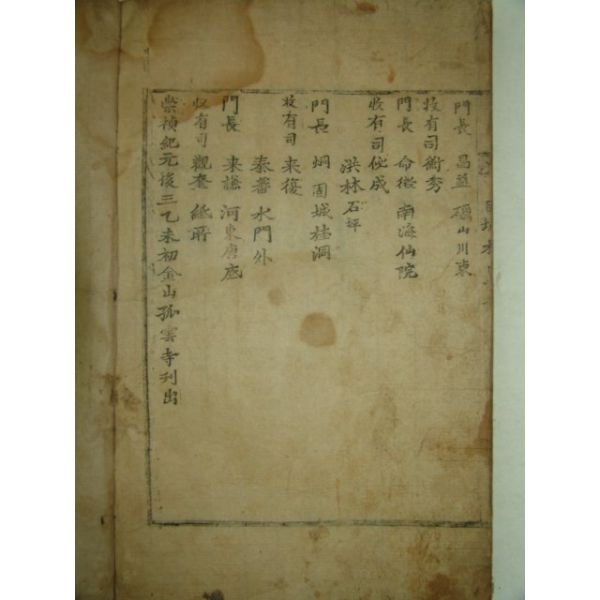 門長 昌益 山川東
收有司 衡秀
門長 命徵 南海仙院
收有司 成
洪林 石坪
門長 炯 固城桂洞
收有司 來復
泰蕃 水門外
門長 來謙 河東唐底
收有司 觀奎 紙所
崇禎紀元後三乙未初金山孤雲寺刊出